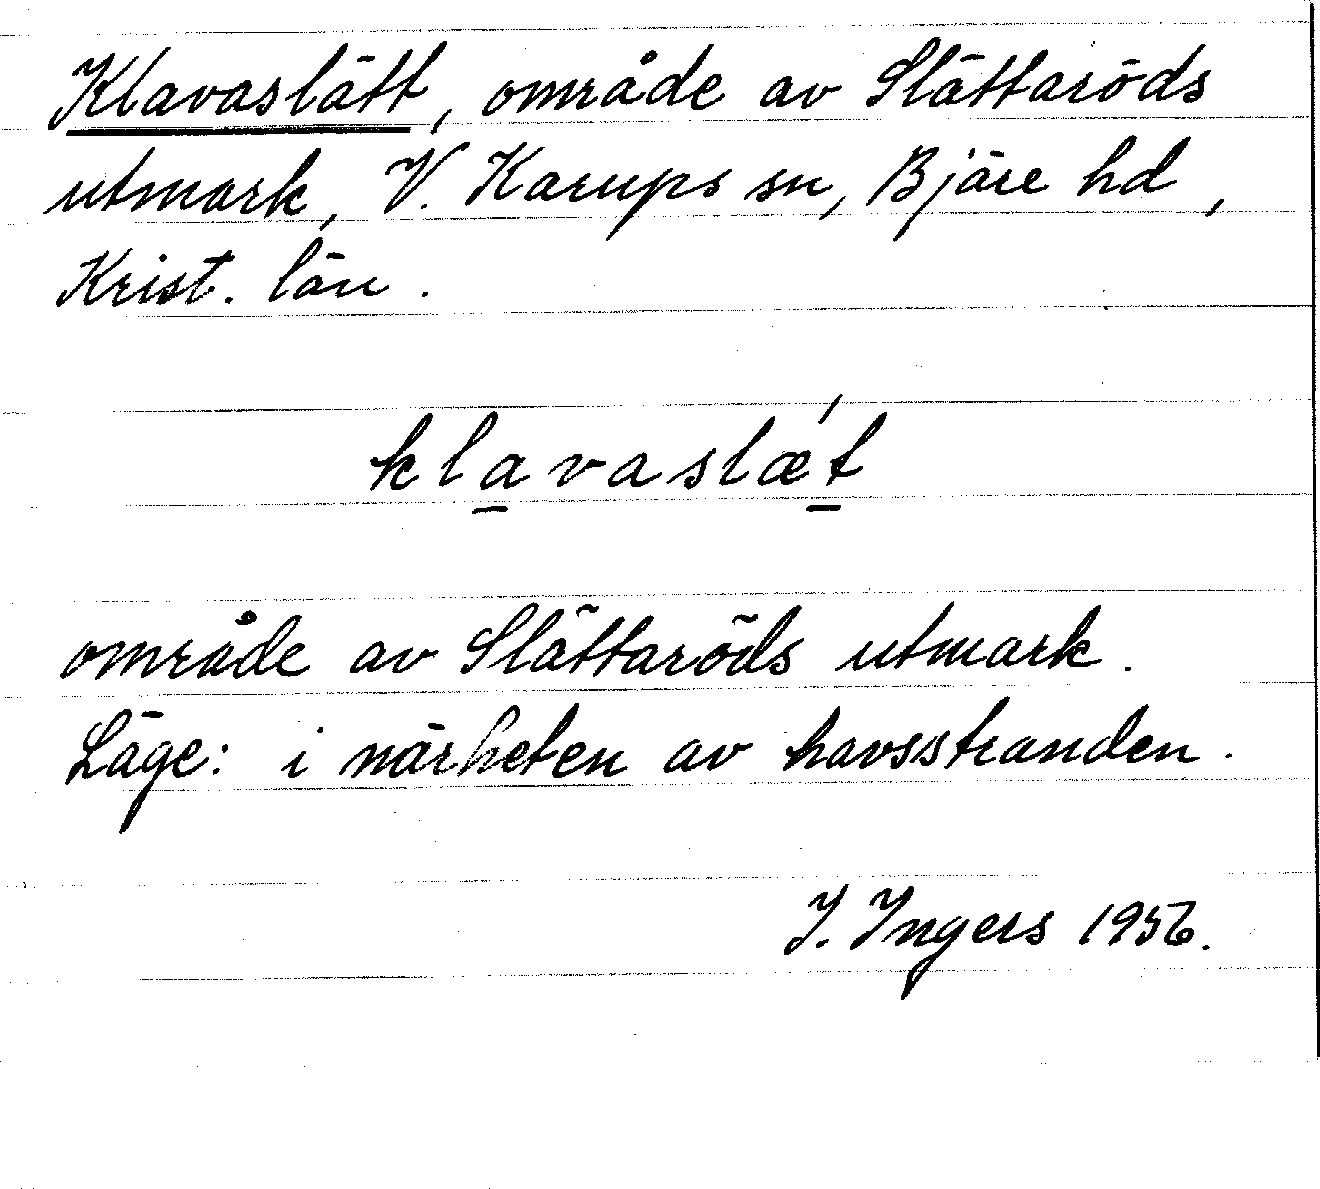 Klavaslätt, område av Slättaröds
utmark, V. Karups sn, Bjäre hd,
Krist. län.
kla̱vaslǽ̱t
område av Slättaröds utmark.
Läge: i närheten av havsstranden.
I. Ingers 1956.